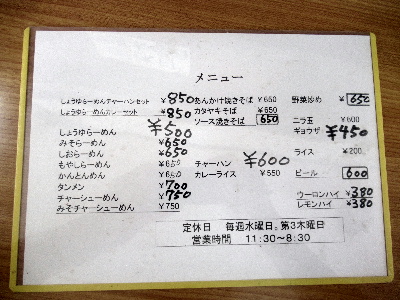 メニュー
しょうゆらーめんチャーハンセット ¥850
しょうゆらーめんカレーセット ¥850
しょうゆらーめん ¥500
みそらーめん ¥650
しおらーめん ¥650
もやしらーめん ¥650
かんとんめん ¥650
タンメン ¥700
チャーシューめん ¥750
みそチャーシューめん ¥750
あんかけ焼きそば ¥650
カタヤキそば ¥650
ソース焼きそば 650
チャーハン ¥600
カレーライス ¥550
野菜炒め ¥650
ニラ玉 ¥600
ギョウザ ¥450
ライス ¥200
ビール 600
ウーロンハイ ¥380
レモンハイ ¥380
定休日 毎週水曜日。第3木曜日
営業時間 11:30～8:30